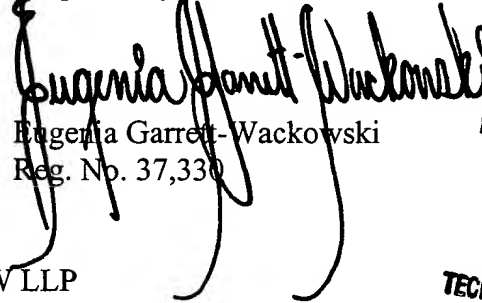 Eugenia Garrett-Wackowski
Eugenia Garrett-Wackowski
Reg. No. 37,330
LLP
TEC